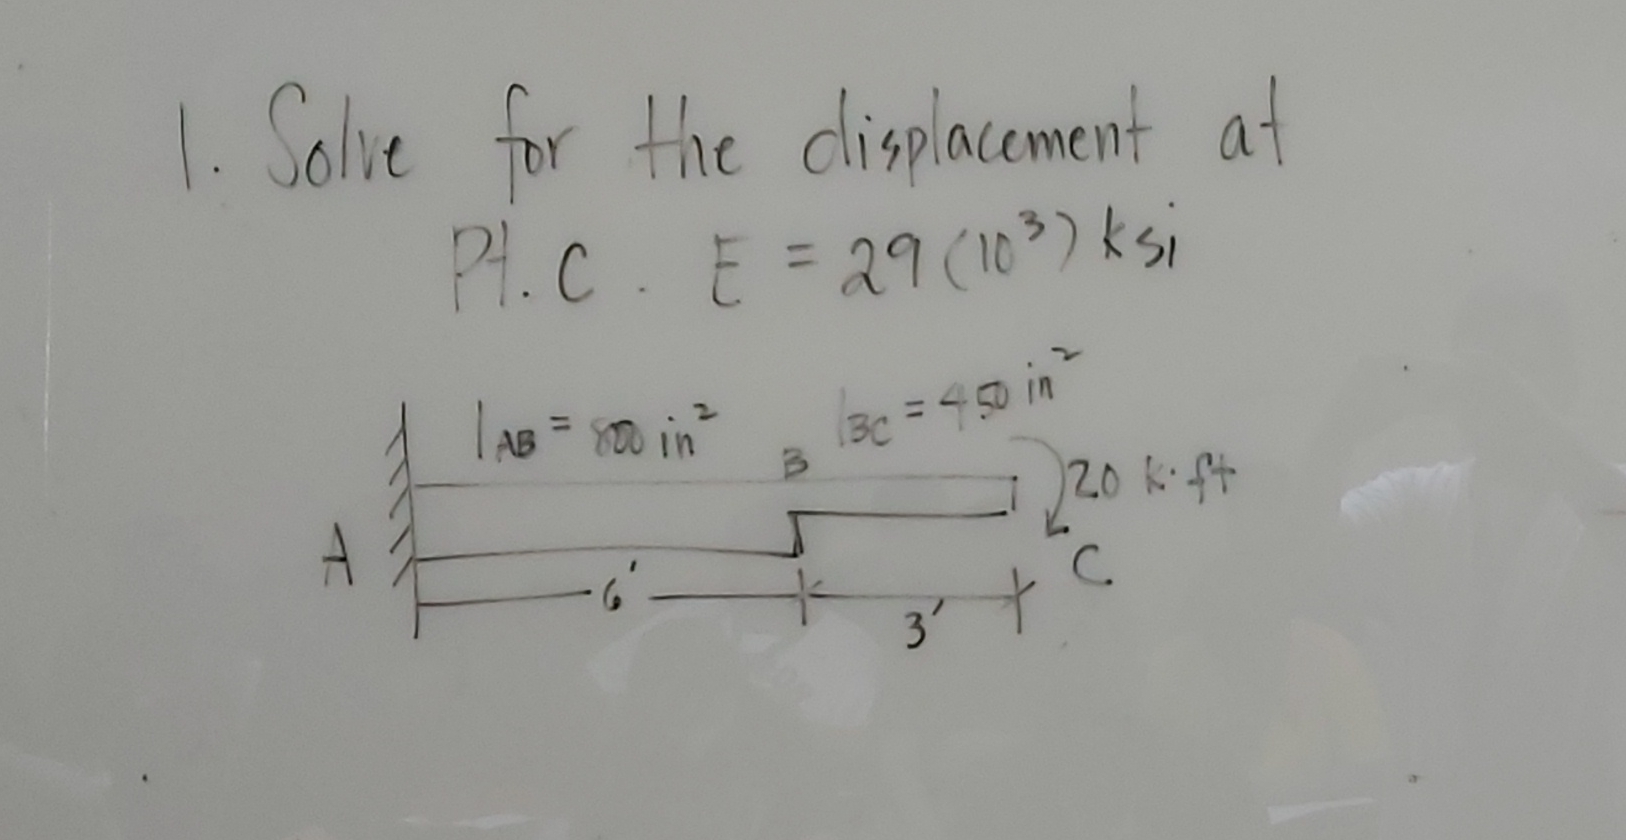 1. Solve for the displacement at
Pt. C. E = 29(10³) ksi
I_AB = 800 in²
I_BC = 450 in²
B
20 k·ft
A
C
6'
3'